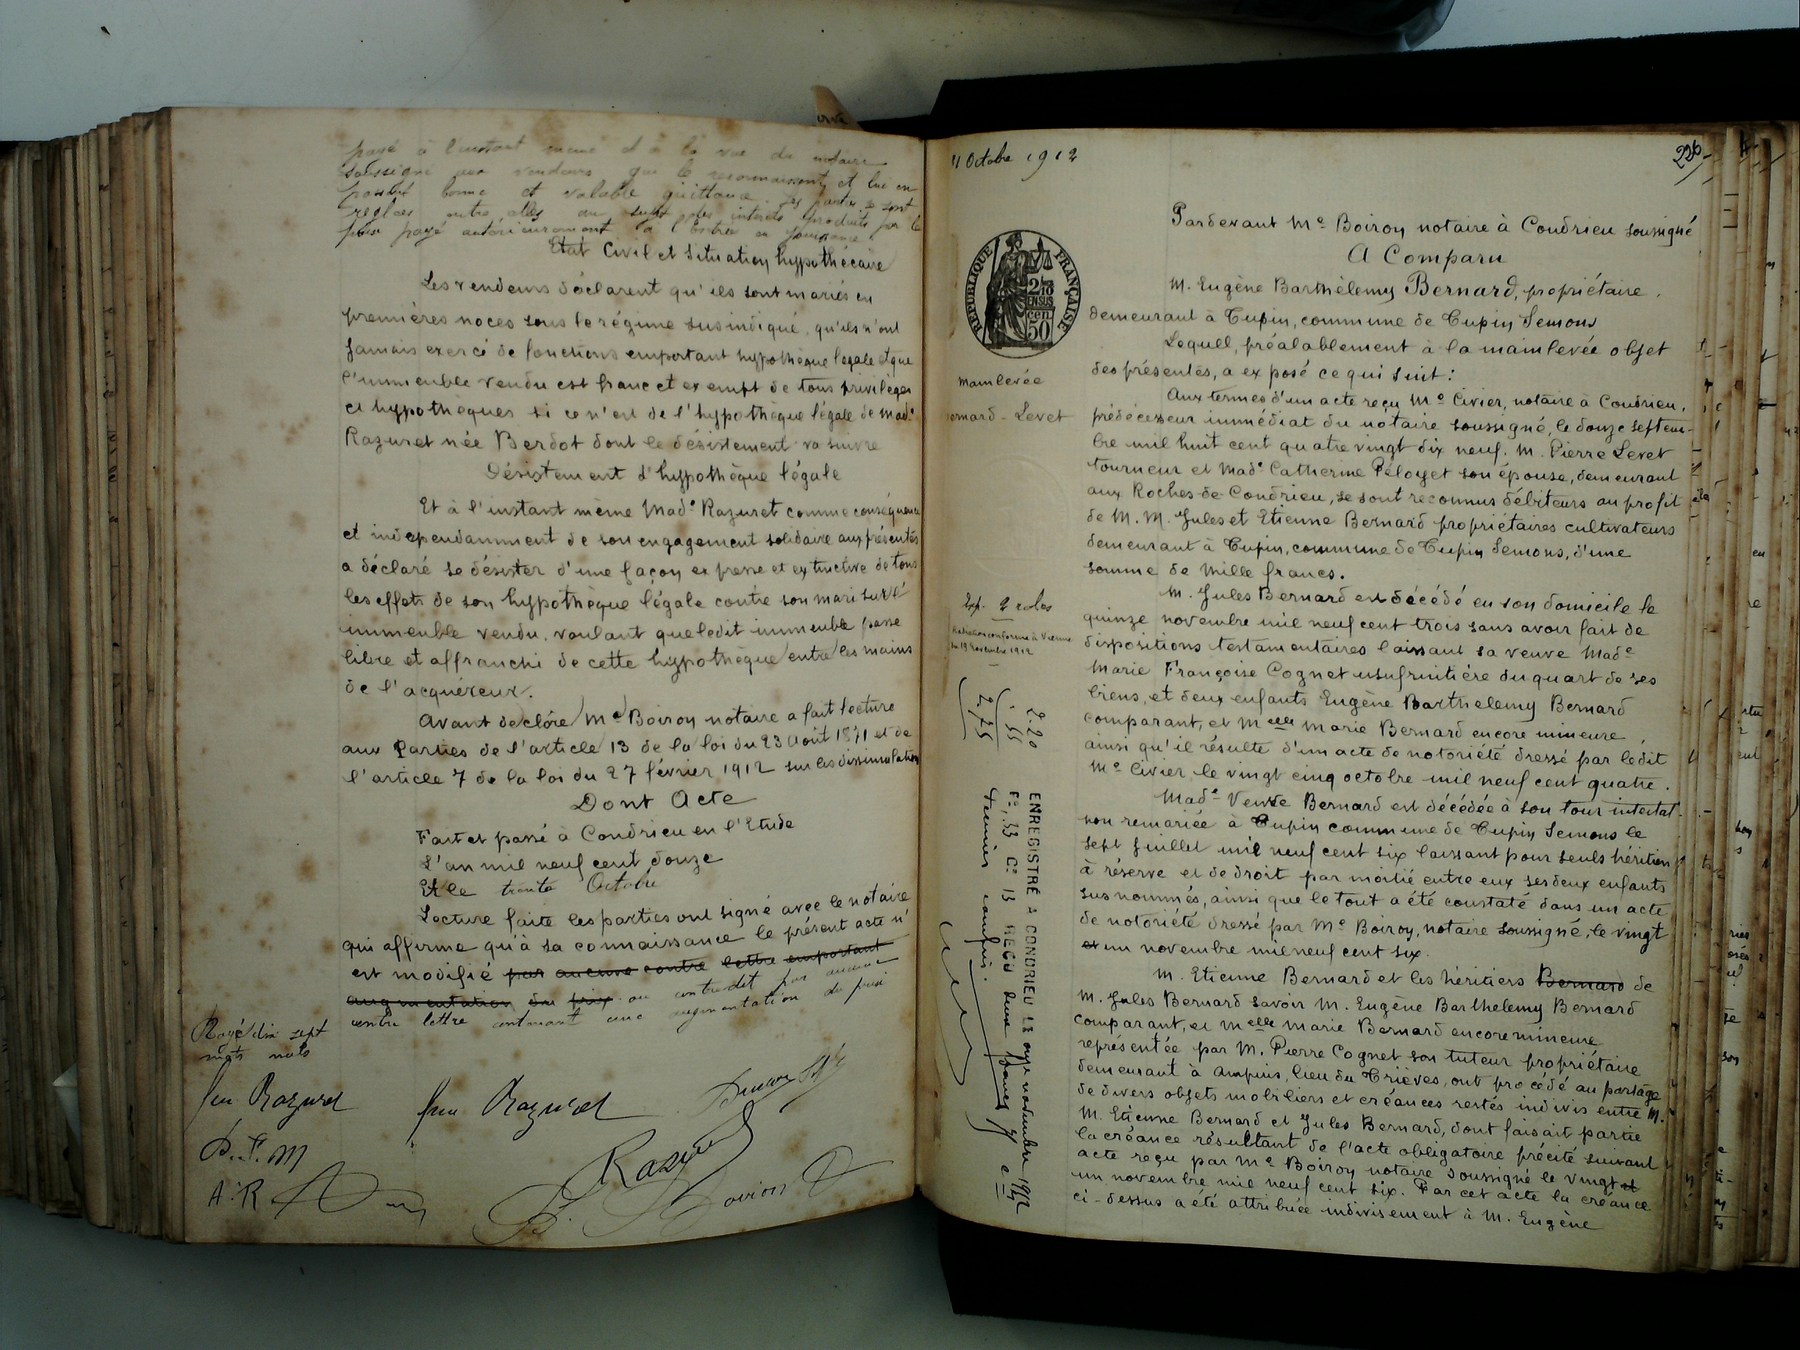 payé à l'instant même et à la vue du notaire
soussigné aux vendeurs qui le reconnaissent et lui en
bonne et valable quittance. Les parties se sont
réglées entre elles au sujet des intérêts produits par le
prix payé antérieurement à l'entrée en jouissance.
Etat Civil et Situation hypothécaire
Les vendeurs déclarent qu'ils sont mariés en
premières noces sous le régime susindiqué, qu'ils n'ont
jamais exercé de fonctions emportant hypothèque légale et que
l'immeuble vendu est franc et exempt de tous privilèges
et hypothèques si ce n'est de l'hypothèque légale de Made
Razuret née Berdot dont le désistement va suivre
Désistement d'hypothèque légale
Et à l'instant même Made Razuret comme conséquence
et indépendamment de son engagement solidaire aux présentes
a déclaré se désister d'une façon expresse et extinctive de tous
les effets de son hypothèque légale contre son mari sur l'
immeuble vendu, voulant que ledit immeuble passe
libre et affranchi de cette hypothèque entre les mains
de l'acquéreur.
Avant de clôre Me Boiron notaire a fait lecture
aux Parties de l'article 13 de la loi du 23 Août 1871 et de
l'article 7 de la loi du 27 février 1912 sur les dissimulations
Dont Acte
Fait et passé à Condrieu en l'Etude
L'an mil neuf cent douze
Et le trente Octobre
Lecture faite les parties ont signé avec le notaire
qui affirme qu'à sa connaissance le présent acte n'
est modifié par aucune contre lettre emportant
augmentation du prix ou contredit par aucune
contre lettre contenant une augmentation de prix
Rayé dix sept
mots nuls
fme Razuret
fme Razuret
D. F. M
Razuret
A. R
11 Octobre 1912
226
RÉPUBLIQUE FRANÇAISE
2/10
EN SUS
cen
50
Mainlevée
Bernard - Levet
Exp. 2 roles
Radiation conforme à Vienne
du 19 Novembre 1912
2.20
.55
2.75
ENREGISTRÉ A CONDRIEU LE onze novembre 1912
Fo 33 Co 13 REÇU deux francs
décimes compris.
Pardevant Me Boiron notaire à Condrieu soussigné
A Comparu
M. Eugène Barthèlemy Bernard, propriétaire,
demeurant à Tupin, commune de Tupin Semons
Lequel, préalablement à la mainlevée objet
des présentes, a exposé ce qui suit:
Aux termes d'un acte reçu Me Civier, notaire à Condrieu,
prédécesseur immédiat du notaire soussigné, le douze septem-
bre mil huit cent quatre vingt dix neuf. M. Pierre Levet
tourneur et Made Catherine Péloyet son épouse, demeurant
aux Roches de Condrieu, se sont reconnus débiteurs au profit
de M. M. Jules et Etienne Bernard propriétaires cultivateurs
demeurant à Tupin, commune de Tupin Semons, d'une
somme de mille francs.
M. Jules Bernard est décédé en son domicile le
quinze novembre mil neuf cent trois sans avoir fait de
dispositions testamentaires laissant sa veuve Made
Marie Françoise Cognet usufruitière du quart de ses
biens, et deux enfants Eugène Barthelemy Bernard
comparant, et Melle Marie Bernard encore mineure,
ainsi qu'il résulte d'un acte de notoriété dressé par ledit
Me Civier, le vingt cinq octobre mil neuf cent quatre.
Made Veuve Bernard est décédée à son tour intestat
non remariée à Tupin commune de Tupin Semons le
sept juillet mil neuf cent six laissant pour seuls héritiers
à réserve et de droit par moitié entre eux ses deux enfants
sus nommés, ainsi que le tout a été constaté dans un acte
de notoriété dressé par Me Boiron, notaire soussigné, le vingt
et un novembre mil neuf cent six.
M. Etienne Bernard et les héritiers Bernard de
M. Jules Bernard savoir M. Eugène Barthelemy Bernard
comparant, et Melle Marie Bernard encore mineure
représentée par M. Pierre Cognet son tuteur propriétaire
demeurant à Ampuis, lieu du Trièves, ont procédé au partage
de divers objets mobiliers et créances restés indivis entre M.
M. Etienne Bernard et Jules Bernard, dont faisait partie
la créance résultant de l'acte obligatoire précité suivant
acte reçu par Me Boiron notaire soussigné le vingt et
un novembre mil neuf cent six. Par cet acte la créance
ci-dessus a été attribuée indivisement à M. Eugène